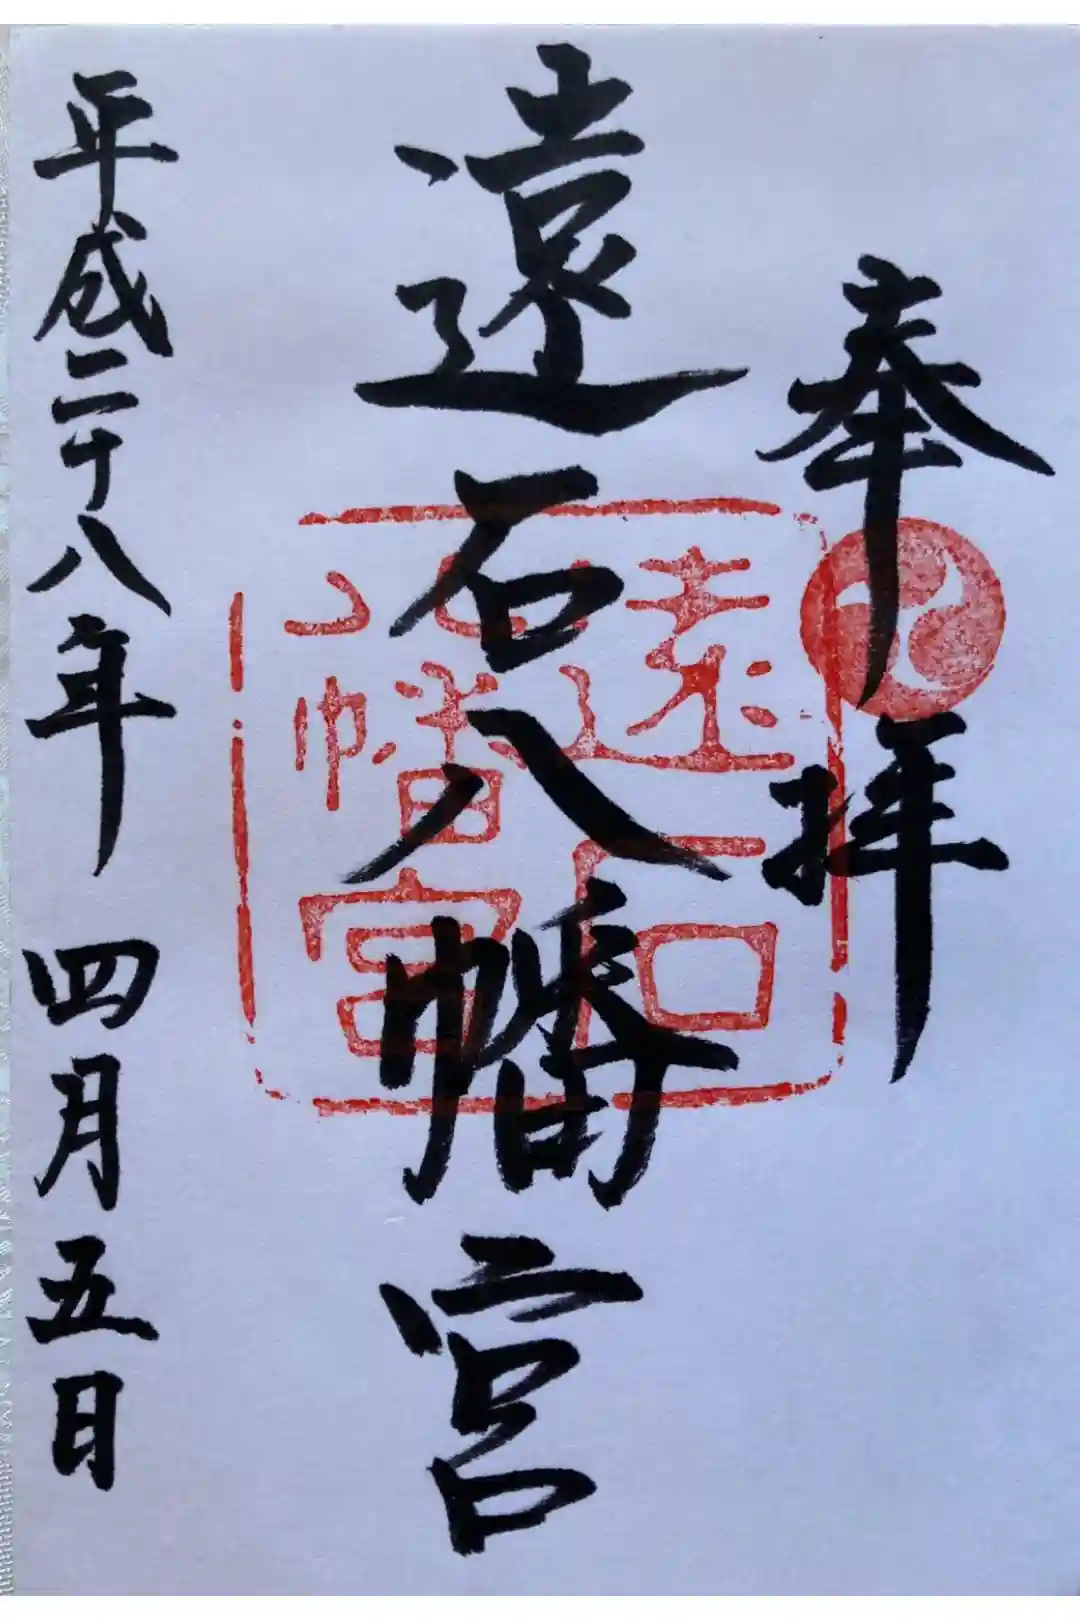 奉拝
遠石八幡宮
遠石
八幡宮
平成二十八年 四月五日